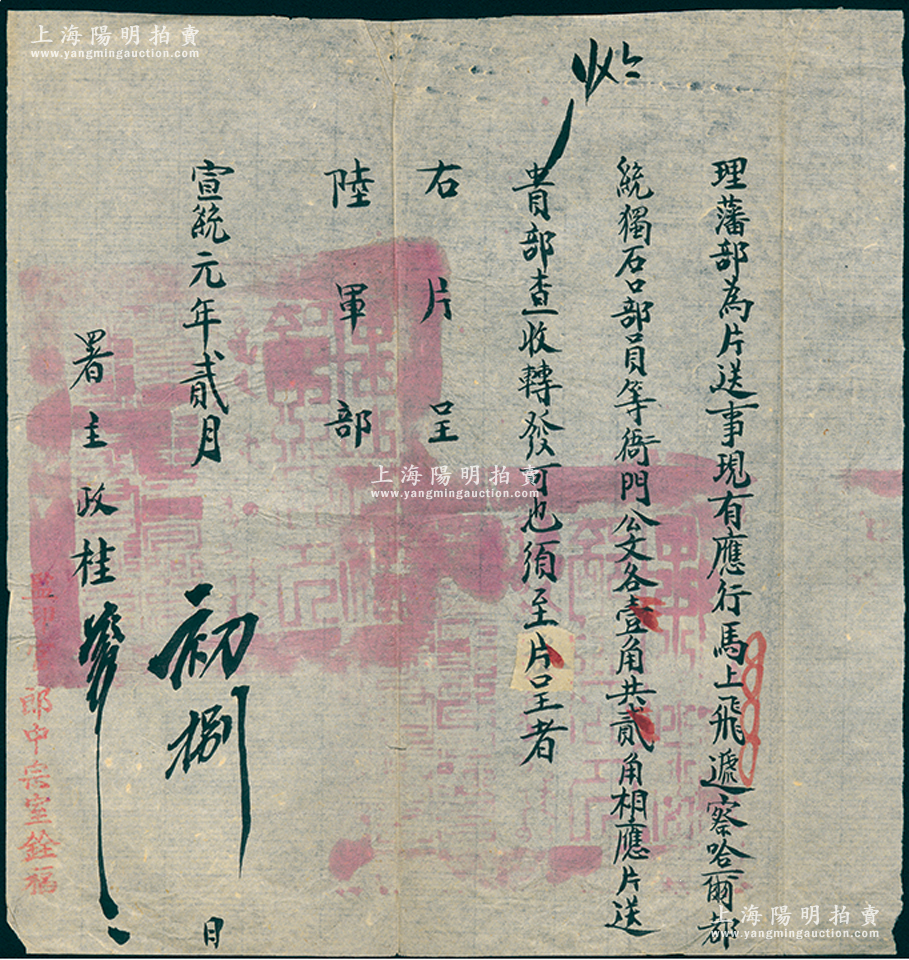 理藩部為片送事現有應行馬上飛遞察哈爾都
統獨石口部員等衙門公文各壹角共貳角相應片送
貴部查收轉發可也須至片呈者
右片呈
陸軍部
宣統元年貳月初捌日
署主政桂
監印
郎中宗室銓福
上海陽明拍賣
www.yangmingauction.com
上海陽明拍賣
www.yangmingauction.com
上海陽明拍賣
www.yangmingauction.com